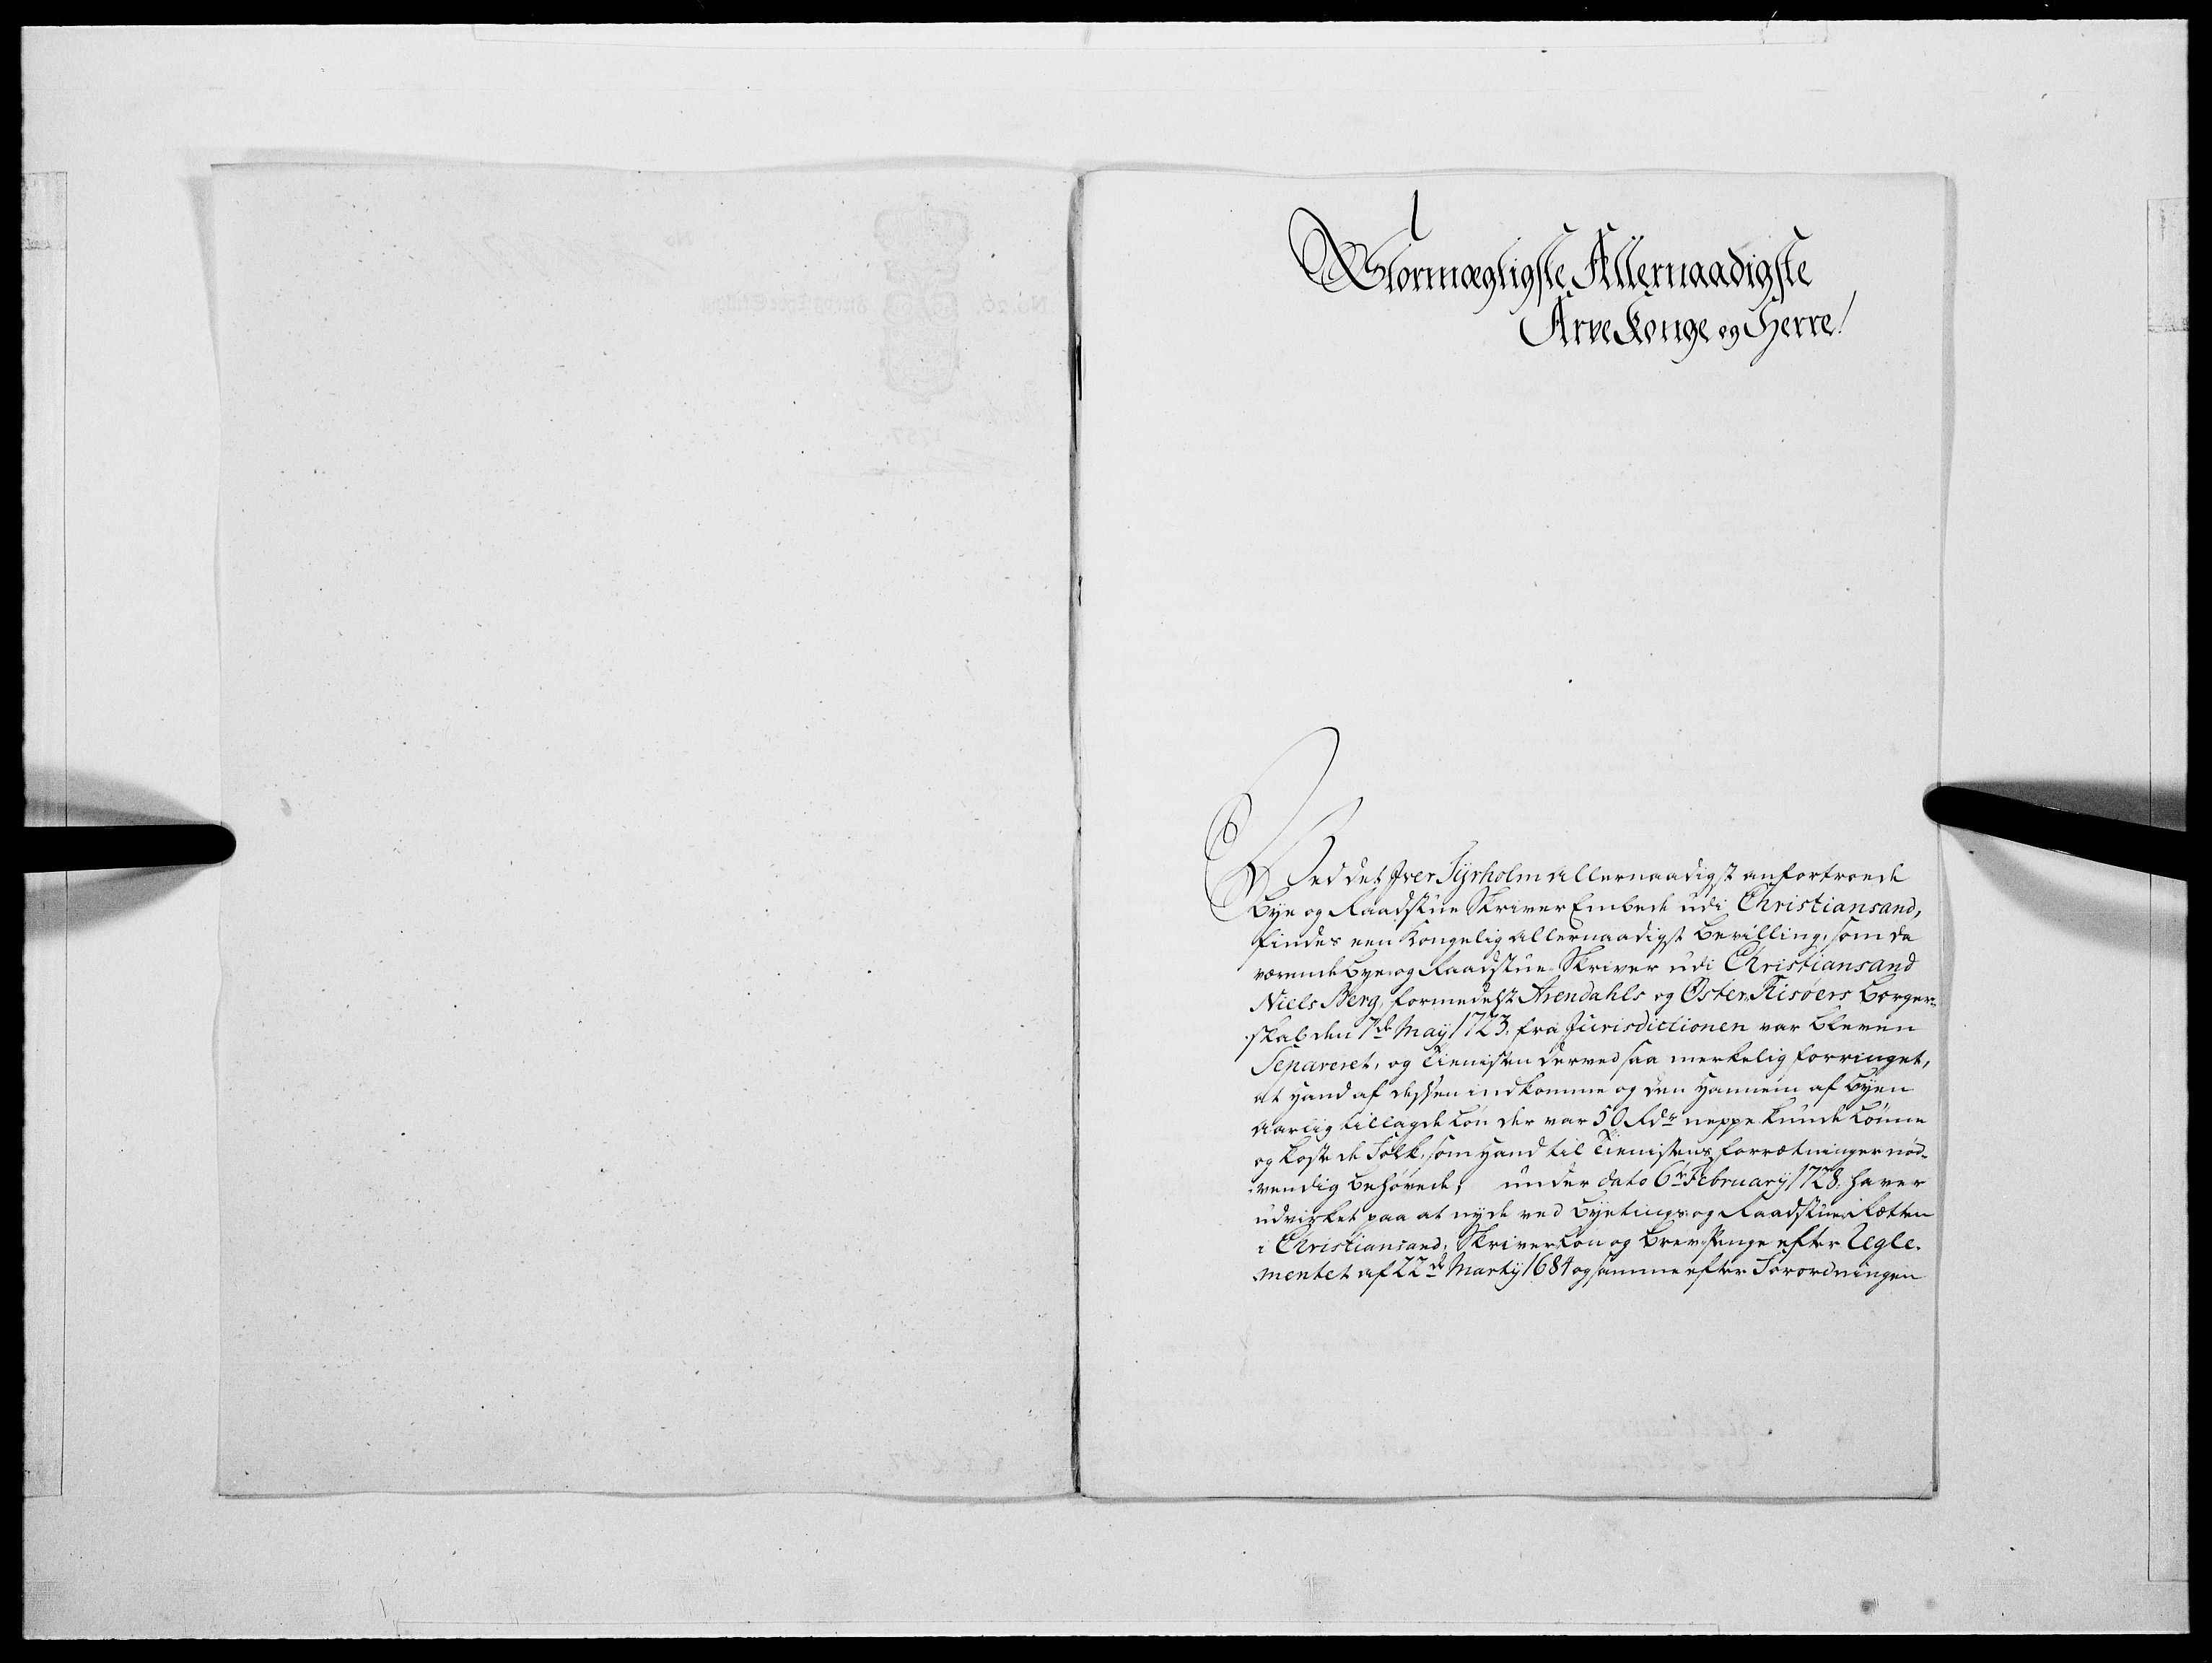 Stormægtigste Allernaadigste
Arve Konge og Herre!
Ved det Iver Tyrholm allernaadigst anfortroede
Bye og Raadstue Skriver Embede udi Christiansand,
findes een Kongelig allernaadigst Bevilling, som da
værende Bye og Raadstue Skriver udi Christiansand
Niels Berg, formedelst Arendahls og Øster Riisøers Borger-
skab den 7de Maÿ 1723. fra Jurisdictionen var bleven
Separeret, og Tienisten derved saa merkelig forringet,
at hand af dessen indkomme og den hannem af Byen
aarlig tillagde Løn der var 50 Rdr neppe kunde lønne
og koste de Folk, som hand til Tienistens forretninger nød-
vendig behøvede, under dato 6te Februarÿ 1728. haver
udvirket paa at nyde ved Byetings og Raadstue Retten
i Christiansand, Skriverløn og Brev Penge efter Regle-
mentet af 22de Martÿ 1684 og samme efter Forordningen